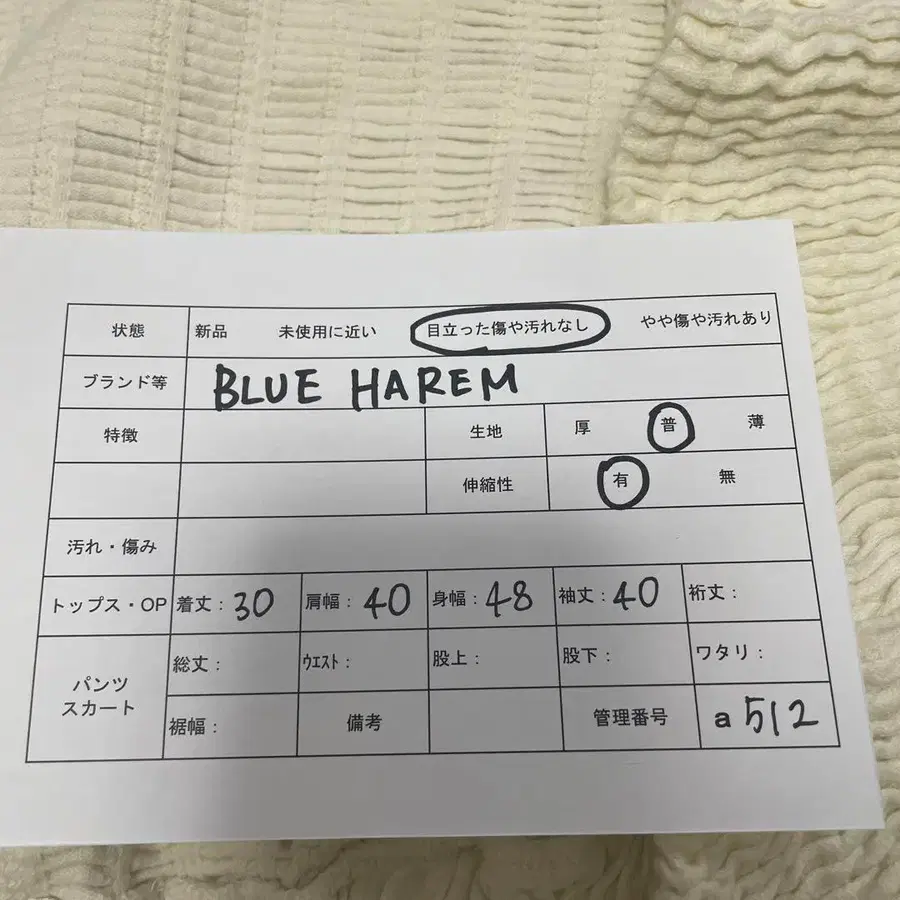 状態 新品 未使用に近い 目立った傷や汚れなし やや傷や汚れあり
ブランド等 BLUE HAREM
特徴 生地 厚 普 薄
伸縮性 有 無
汚れ・傷み
トップス・OP 着丈：30 肩幅：40 身幅：48 袖丈：40 裄丈：
パンツ
スカート
総丈： ウエスト： 股上： 股下： ワタリ：
裾幅： 備考 管理番号 a 512